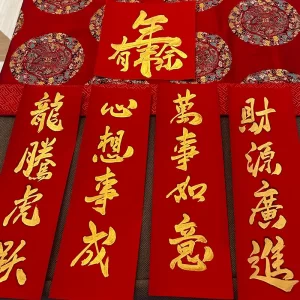 年有餘
財源廣進
萬事如意
心想事成
龍騰虎躍